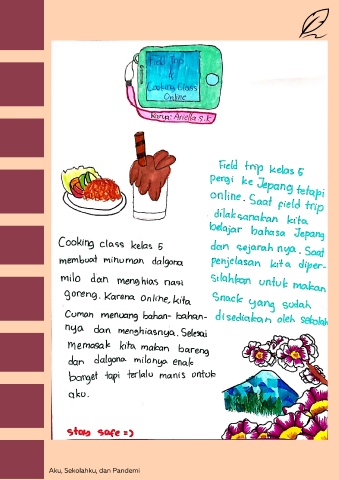 Field Trip
&
Cooking Class
Online
Karya: Ariella S.K
Field trip kelas 5
pergi ke Jepang tetapi
online. Saat field trip
dilaksanakan kita
belajar bahasa Jepang
dan sejarah nya. Saat
penjelasan kita diper-
silahkan untuk makan
snack yang sudah
disediakan oleh sekolah
Cooking class kelas 5
membuat minuman dalgona
milo dan menghias nasi
goreng. Karena online, kita
Cuman menuang bahan-bahan-
nya dan menghiasnya. Selesai
memasak kita makan bareng
dan dalgona milonya enak
banget tapi terlalu manis untuk
aku.
stay safe =)
Aku, Sekolahku, dan Pandemi